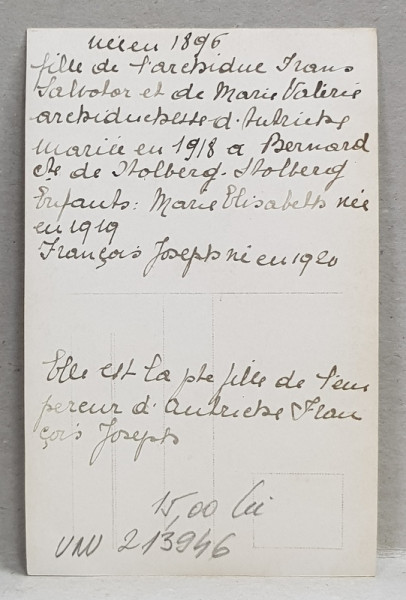 née en 1896
fille de l'archiduc Frans
Salvator et de Marie Valérie
archiduchesse d'Autriche
mariée en 1918 a Bernard
cte de Stolberg-Stolberg
Enfants: Marie Elisabeth née
en 1919
François Joseph né en 1920
Elle est la pte fille de l'em
pereur d'Autriche Fran
çois Joseph
15,00 lei
VAV 213946